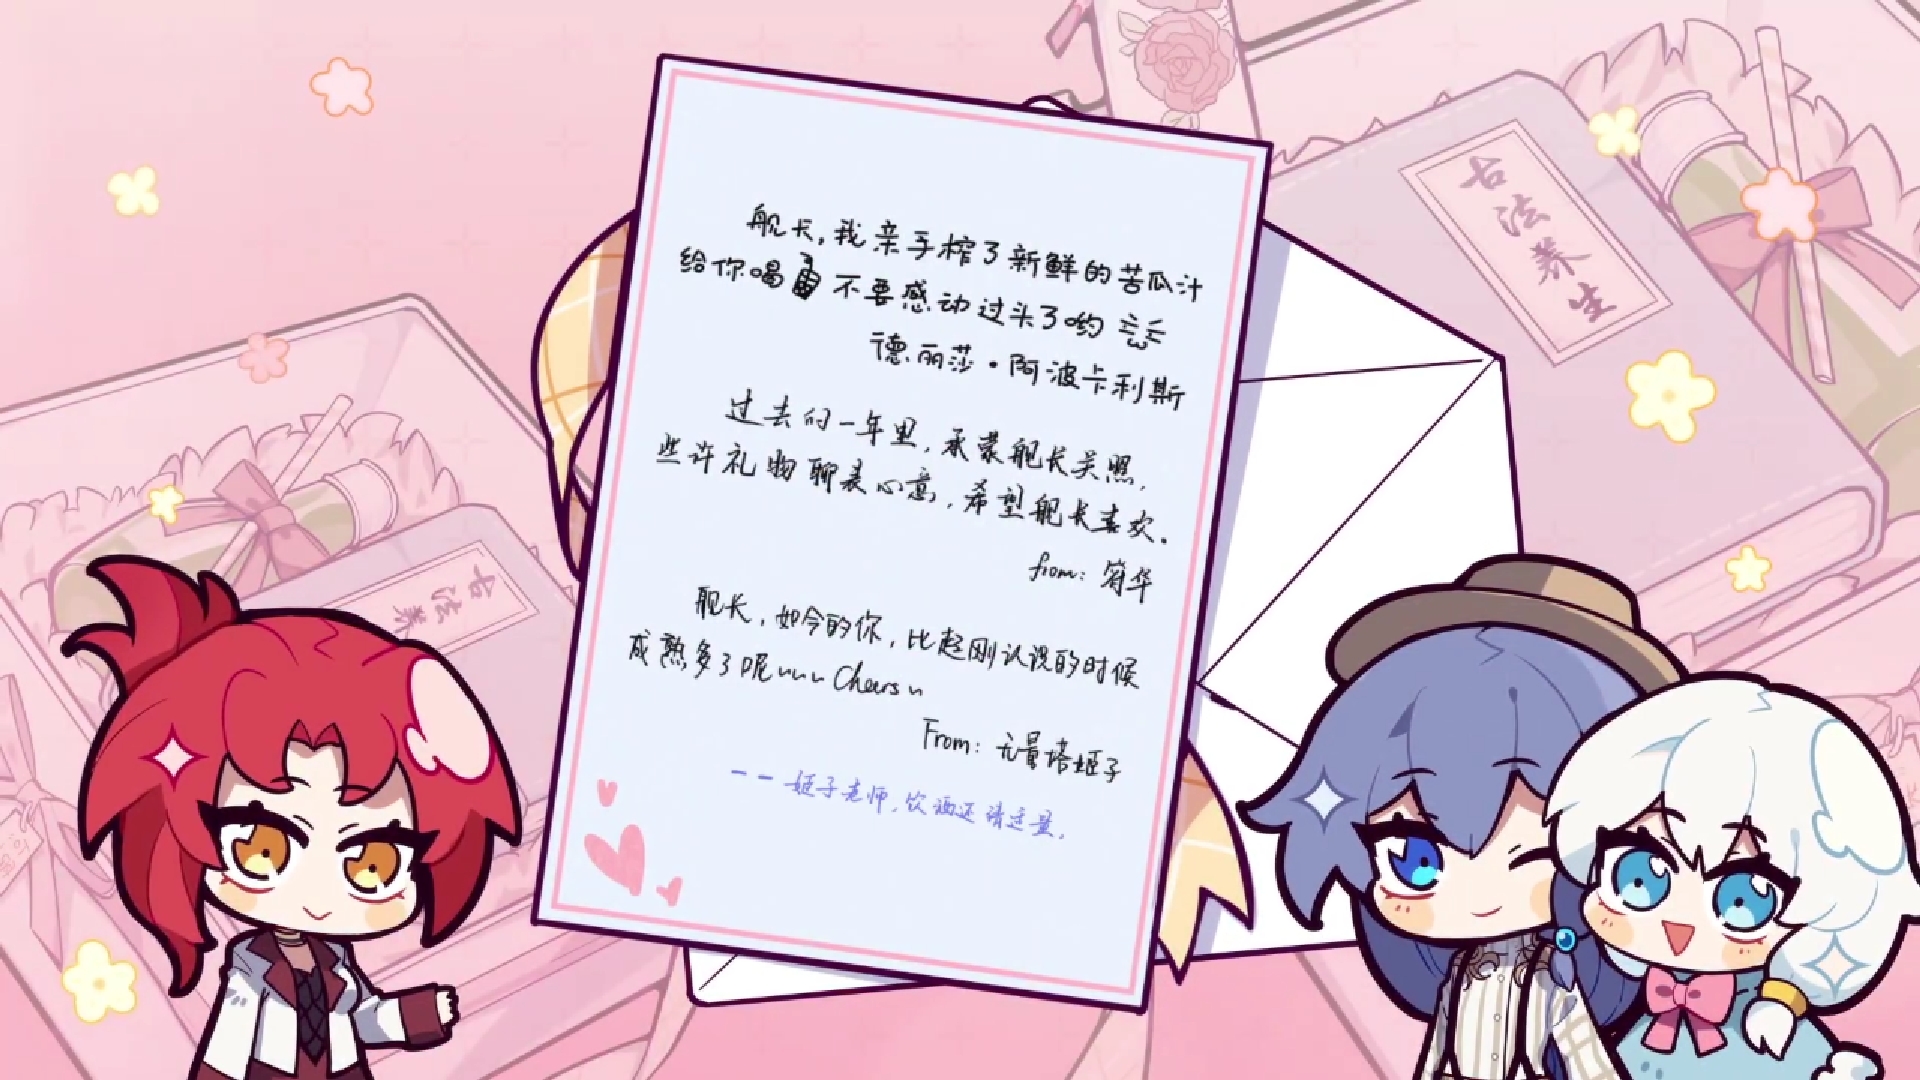 舰长,我亲手榨了新鲜的苦瓜汁
给你喝 不要感动过头了哟
德丽莎·阿波卡利斯
过去的一年里,承蒙舰长关照,
些许礼物聊表心意,希望舰长喜欢。
from: 符华
舰长,如今的你,比起刚认识的时候
成熟多了呢~~~Cheers~
From: 无量塔姬子
——姬子老师,饮酒还请适量.
古法养生
古法养